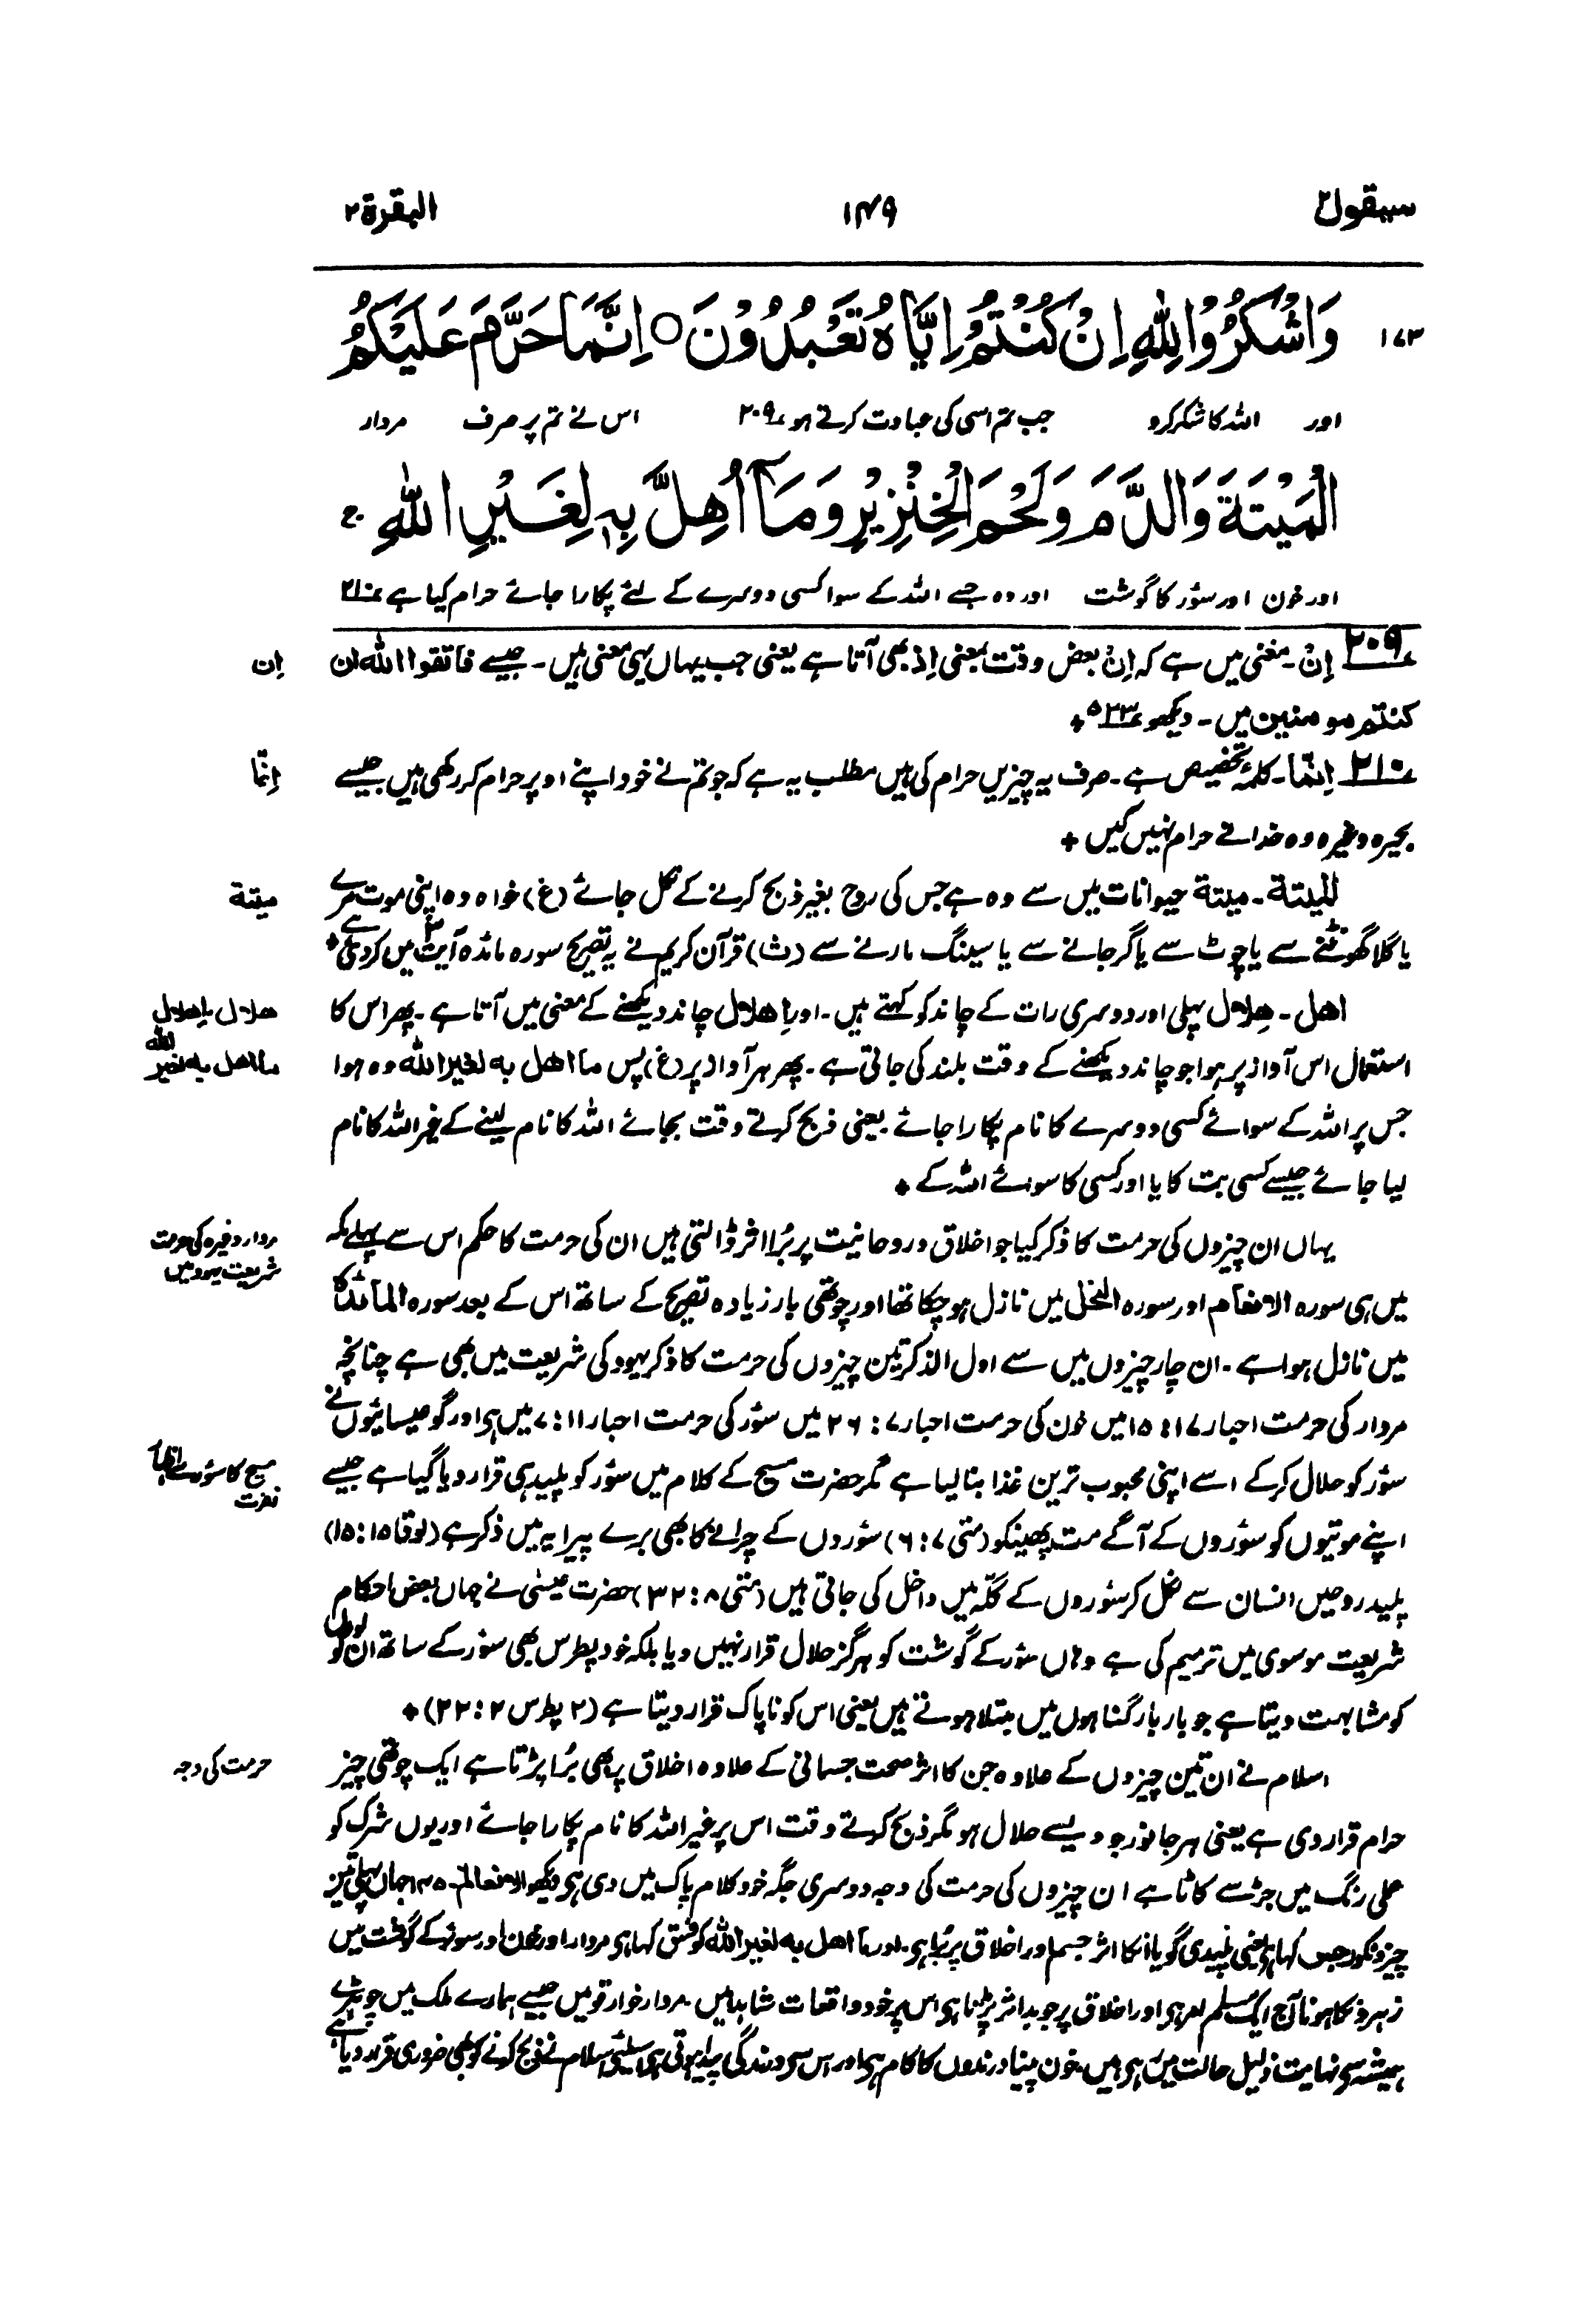 سیقول ۲
۱۴۹
البقرة ۲
۱۷۳
وَاشْكُرُوْا لِلّٰهِ اِنْ كُنْتُمْ اِيَّاهُ تَعْبُدُوْنَ ○ اِنَّمَا حَرَّمَ عَلَيْكُمُ
اور اللہ کا شکر کرو جب تم اسی کی عبادت کرتے ہو ۲۰۹ اس نے تم پر صرف مردار
الْمَيْتَةَ وَالدَّمَ وَلَحْمَ الْخِنْزِيْرِ وَمَآ اُهِلَّ بِهٖ لِغَيْرِ اللّٰهِ ج
اور خون اور سؤر کا گوشت اور وہ جسے اللہ کے سوا کسی دوسرے کے لئے پکارا جائے حرام کیا ہے ۲۱۰
۲۰۹ اِنْ۔ مغنی میں ہے کہ اِنْ بعض وقت بمعنی اِذ بھی آتا ہے یعنی جب یہاں یہی معنی ہیں۔ جیسے فاتقوا اللہ ان
اِن
کنتم مومنین میں۔ دیکھو ۵۲۳ +
۲۱۰ اِنَّمَا۔ کلمۂ تخصیص ہے۔ صرف یہ چیزیں حرام کی ہیں مطلب یہ ہے کہ جو تم نے خود اپنے اوپر حرام کر رکھی ہیں جیسے
اِنَّمَا
بحیرہ وغیرہ وہ خدا نے حرام نہیں کیں +
المیتة۔ میتة حیوانات میں سے وہ ہے جس کی روح بغیر ذبح کرنے کے نکل جائے (غ) خواہ وہ اپنی موت مرے
میتة
یا گلا گھونٹنے سے یا چوٹ سے یا گر جانے سے یا سینگ مارنے سے (ث) قرآن کریم نے یہ تصریح سورہ مائدہ آیت ۳ میں کر دی ہے +
اهل۔ هِلال پہلی اور دوسری رات کے چاند کو کہتے ہیں۔ اور اِهلال چاند دیکھنے کے معنی میں آتا ہے۔ پھر اس کا
هلال یا اهلال
استعمال اس آواز پر ہوا جو چاند دیکھنے کے وقت بلند کی جاتی ہے۔ پھر ہر آواز پر (غ) پس ما اهل به لغیر اللہ وہ ہوا
ما اهل به لغیر اللہ
جس پر اللہ کے سوائے کسی دوسرے کا نام پکارا جائے یعنی ذبح کرتے وقت بجائے اللہ کا نام لینے کے غیر اللہ کا نام
لیا جائے جیسے کسی بت کا یا اور کسی کا سوائے اللہ کے +
یہاں ان چیزوں کی حرمت کا ذکر کیا جو اخلاق و روحانیت پر بُرا اثر ڈالتی ہیں ان کی حرمت کا حکم اس سے پہلے مکہ
مردار وغیرہ کی حرمت
شریعت یہود میں
میں ہی سورہ الانعام اور سورہ النحل میں نازل ہو چکا تھا اور چوتھی بار زیادہ تصریح کے ساتھ اس کے بعد سورہ المائدة
میں نازل ہوا ہے۔ ان چار چیزوں میں سے اول الذکر تین چیزوں کی حرمت کا ذکر یہود کی شریعت میں بھی ہے چنانچہ
مردار کی حرمت احبار ۱۷:۱۵ میں خون کی حرمت احبار ۷:۲۶ میں سؤر کی حرمت احبار ۱۱:۷ میں ہی اور گو عیسائیوں نے
سؤر کو حلال کر کے اسے اپنی محبوب ترین غذا بنا لیا ہے مگر حضرت مسیح کے کلام میں سؤر کو پلید ہی قرار دیا گیا ہے جیسے
مسیح کا سؤر سے اظہار
نفرت
اپنے موتیوں کو سؤروں کے آگے مت پھینکو (متی ۷:۶) سؤروں کے چرانے کا بھی برے پیرایہ میں ذکر ہے (لوقا ۱۵:۱۵)
پلید روحیں انسان سے نکل کر سؤروں کے گلّہ میں داخل کی جاتی ہیں (متی ۸:۳۲) حضرت عیسیٰ نے جہاں بعض احکام
شریعت موسوی میں ترمیم کی ہے وہاں سؤر کے گوشت کو ہرگز حلال قرار نہیں دیا بلکہ خود پطرس بھی سؤر کے ساتھ ان لوگوں
کو مشابہت دیتا ہے جو بار بار گناہوں میں مبتلا ہوتے ہیں یعنی اس کو ناپاک قرار دیتا ہے (۲ پطرس ۲:۲۲) +
اسلام نے ان تین چیزوں کے علاوہ جن کا اثر صحت جسمانی کے علاوہ اخلاق پر بھی بُرا پڑتا ہے ایک چوتھی چیز
حرمت کی وجہ
حرام قرار دی ہے یعنی ہر جانور جو ویسے حلال ہو مگر ذبح کرتے وقت اس پر غیر اللہ کا نام پکارا جائے اور یوں شرک کو
عملی رنگ میں جڑ سے کاٹا ہے ان چیزوں کی حرمت کی وجہ دوسری جگہ خود کلام پاک میں دی ہی دیکھو الانعام ۶۔۱۴۵ جہاں پہلی تین
چیزونکو رجس کہا ہی یعنی پلیدی گویا انکا اثر جسم اور اخلاق پر بُرا ہی۔ اور ما اهل به لغیر اللہ کو فسق کہا ہی مردار اور خون اور سوئر کے گوشت میں
زہروں کا ہونا آج ایک مسلم امر ہی اور اخلاق پر جو بد اثر پڑتا ہی اس پر خود واقعات شاہد ہیں۔ مردار خوار قومیں جیسے ہمارے ملک میں چوہڑے
ہمیشہ سے نہایت ذلیل حالت میں رہی ہیں۔ خون پینا درندوں کا کام ہی اور اس سے درندگی پیدا ہوتی ہی اسلئے اسلام نے ذبح کرنے کو بھی ضروری قرار دیا ہے